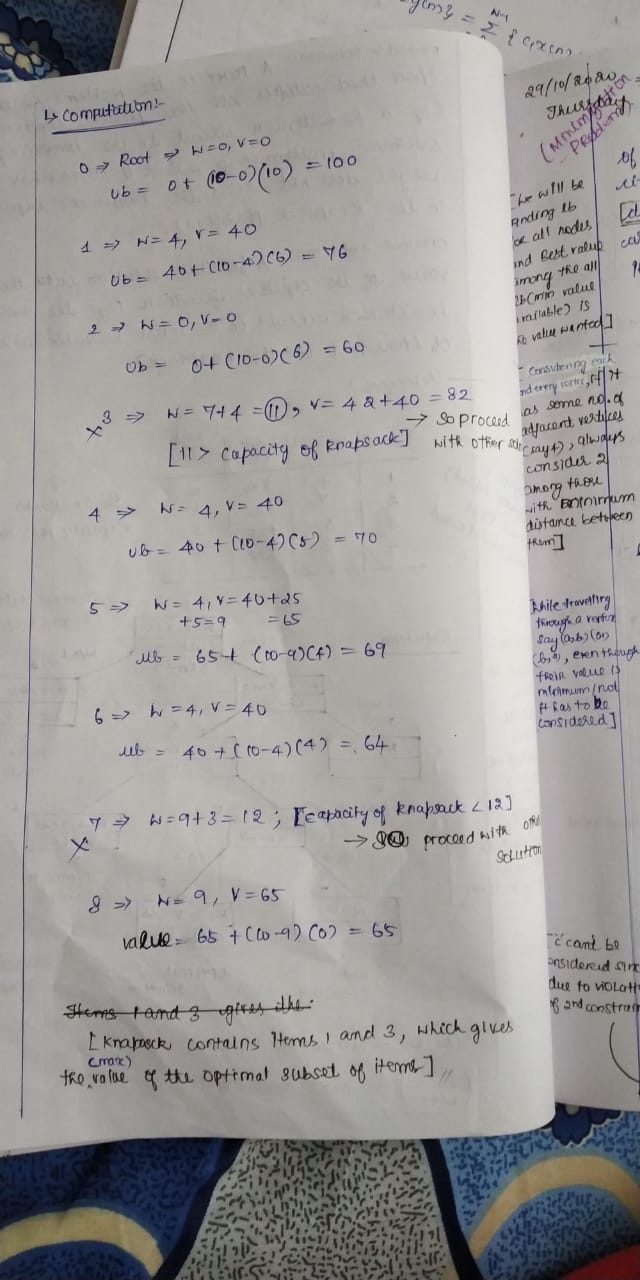 y(m) = Σ { c₁x(n)
N-1
↳ Computation:-
0 ⇒ Root ⇒ W=0, V=0
Ub = 0+ (10-0)(10) = 100
1 ⇒ W= 4, V= 40
Ub= 40+(10-4)(6) = 76
2 ⇒ W=0, V=0
Ub = 0+(10-0)(6) = 60
x 3 ⇒ W= 7+4 = 11, V= 42+40 = 82
[11 > Capacity of knapsack]
→ So proceed
with other soln
4 ⇒ W= 4, V= 40
Ub = 40 + (10-4)(5) = 70
5 ⇒ W= 4, V= 40+25
+5=9 =65
Ub = 65+ (10-9)(4) = 69
6 ⇒ W=4, V= 40
Ub = 40 +(10-4)(4) = 64
x 7 ⇒ W=9+3=12; [capacity of knapsack <12]
→ So proceed with other
Solution
8 ⇒ W= 9, V=65
value= 65 +(10-9)(0) = 65
Items 1 and 3 gives the.
[Knapsack contains Items 1 and 3, which gives
(max)
the value of the optimal subset of items]
29/10/2020
Thursday
(Minimization
Problem)
he will be
inding lb
for all nodes
and Best value
among the all
lb(min value
available) is
value wanted]
Considering each
nd every vertex, if it
as some no. of
adjacent vertices
(say 4), always
consider 2
among those
with minimum
distance between
them]
While travelling
through a vertex
say (a,b) (or)
(b,a), even though
their value is
minimum/not
it has to be
Considered]
'c' cant be
onsidered sinc
due to violati
of 2nd constrain
of